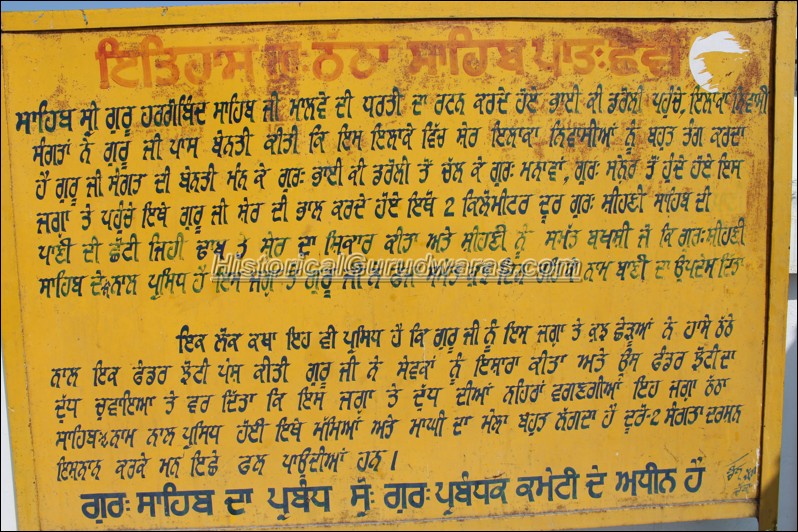 ਇਤਿਹਾਸ ਗੁ: ਠੱਠਾ ਸਾਹਿਬ ਪਾਤ:ਛੇਵੀਂ
ਸਾਹਿਬ ਸ੍ਰੀ ਗੁਰੂ ਹਰਗੋਬਿੰਦ ਸਾਹਿਬ ਜੀ ਮਾਲਵੇ ਦੀ ਧਰਤੀ ਦਾ ਰਟਨ ਕਰਦੇ ਹੋਏ ਭਾਈ ਕੀ ਡਰੋਲੀ ਪਹੁੰਚੇ, ਇਲਾਕਾ ਨਿਵਾਸੀ
ਸੰਗਤਾਂ ਨੇ ਗੁਰੂ ਜੀ ਪਾਸ ਬੇਨਤੀ ਕੀਤੀ ਕਿ ਇਸ ਇਲਾਕੇ ਵਿੱਚ ਸ਼ੇਰ ਇਲਾਕਾ ਨਿਵਾਸੀਆਂ ਨੂੰ ਬਹੁਤ ਤੰਗ ਕਰਦਾ
ਹੈ ਗੁਰੂ ਜੀ ਸੰਗਤ ਦੀ ਬੇਨਤੀ ਮੰਨ ਕੇ ਗੁਰ: ਭਾਈ ਕੀ ਡਰੋਲੀ ਤੋਂ ਚੱਲ ਕੇ ਗੁਰ: ਮਨਾਵਾਂ, ਗੁਰ: ਸਨੇਰ ਤੋਂ ਹੁੰਦੇ ਹੋਏ ਇਸ
ਜਗ੍ਹਾ ਤੇ ਪਹੁੰਚੇ ਇਥੇ ਗੁਰੂ ਜੀ ਸ਼ੇਰ ਦੀ ਭਾਲ ਕਰਦੇ ਹੋਏ ਇਥੋਂ 2 ਕਿਲੋਮੀਟਰ ਦੂਰ ਗੁਰ: ਸੀਹਣੀ ਸਾਹਿਬ ਦੀ
ਪਾਣੀ ਦੀ ਛੋਟੀ ਜਿਹੀ ਢਾਬ ਤੇ ਸ਼ੇਰ ਦਾ ਸ਼ਿਕਾਰ ਕੀਤਾ ਅਤੇ ਸੀਹਣੀ ਨੂੰ ਸੁਮੱਤ ਬਖਸ਼ੀ ਜੋ ਕਿ ਗੁਰ: ਸੀਹਣੀ
ਸਾਹਿਬ ਦੇ ਨਾਲ ਪ੍ਰਸਿਧ ਹੈ ਇਸ ਜਗ੍ਹਾ ਤੇ ਗੁਰੂ ਜੀ ਨੇ ਨਾਮ ਬਾਣੀ ਦਾ ਉਪਦੇਸ਼ ਦਿੱਤਾ
HistoricalGurudwaras.com
ਇਕ ਲੋਕ ਕਥਾ ਇਹ ਵੀ ਪ੍ਰਸਿਧ ਹੈ ਕਿ ਗੁਰੂ ਜੀ ਨੂੰ ਇਸ ਜਗ੍ਹਾ ਤੇ ਕੁਝ ਛੇੜੂਆਂ ਨੇ ਹਾਸੇ ਠੱਠੇ
ਨਾਲ ਇਕ ਫੰਡਰ ਝੋਟੀ ਪੇਸ਼ ਕੀਤੀ ਗੁਰੂ ਜੀ ਨੇ ਸੇਵਕਾਂ ਨੂੰ ਇਸ਼ਾਰਾ ਕੀਤਾ ਅਤੇ ਉਸ ਫੰਡਰ ਝੋਟੀ ਦਾ
ਦੁੱਧ ਚੁਵਾਇਆ ਤੇ ਵਰ ਦਿੱਤਾ ਕਿ ਇਸ ਜਗ੍ਹਾ ਤੇ ਦੁੱਧ ਦੀਆਂ ਨਹਿਰਾਂ ਵਗਣਗੀਆਂ ਇਹ ਜਗ੍ਹਾ ਠੱਠਾ
ਸਾਹਿਬ ਨਾਮ ਨਾਲ ਪ੍ਰਸਿਧ ਹੋਈ ਇਥੇ ਮੱਸਿਆ ਅਤੇ ਮਾਘੀ ਦਾ ਮੇਲਾ ਬਹੁਤ ਲੱਗਦਾ ਹੈ ਦੂਰੋ-2 ਸੰਗਤਾ ਦਰਸ਼ਨ
ਇਸ਼ਨਾਨ ਕਰਕੇ ਮਨ ਇਛੇ ਫਲ ਪਾਉਂਦੀਆਂ ਹਨ।
ਗੁਰ: ਸਾਹਿਬ ਦਾ ਪ੍ਰਬੰਧ ਸ਼੍ਰੋ: ਗੁਰ: ਪ੍ਰਬੰਧਕ ਕਮੇਟੀ ਦੇ ਅਧੀਨ ਹੈ